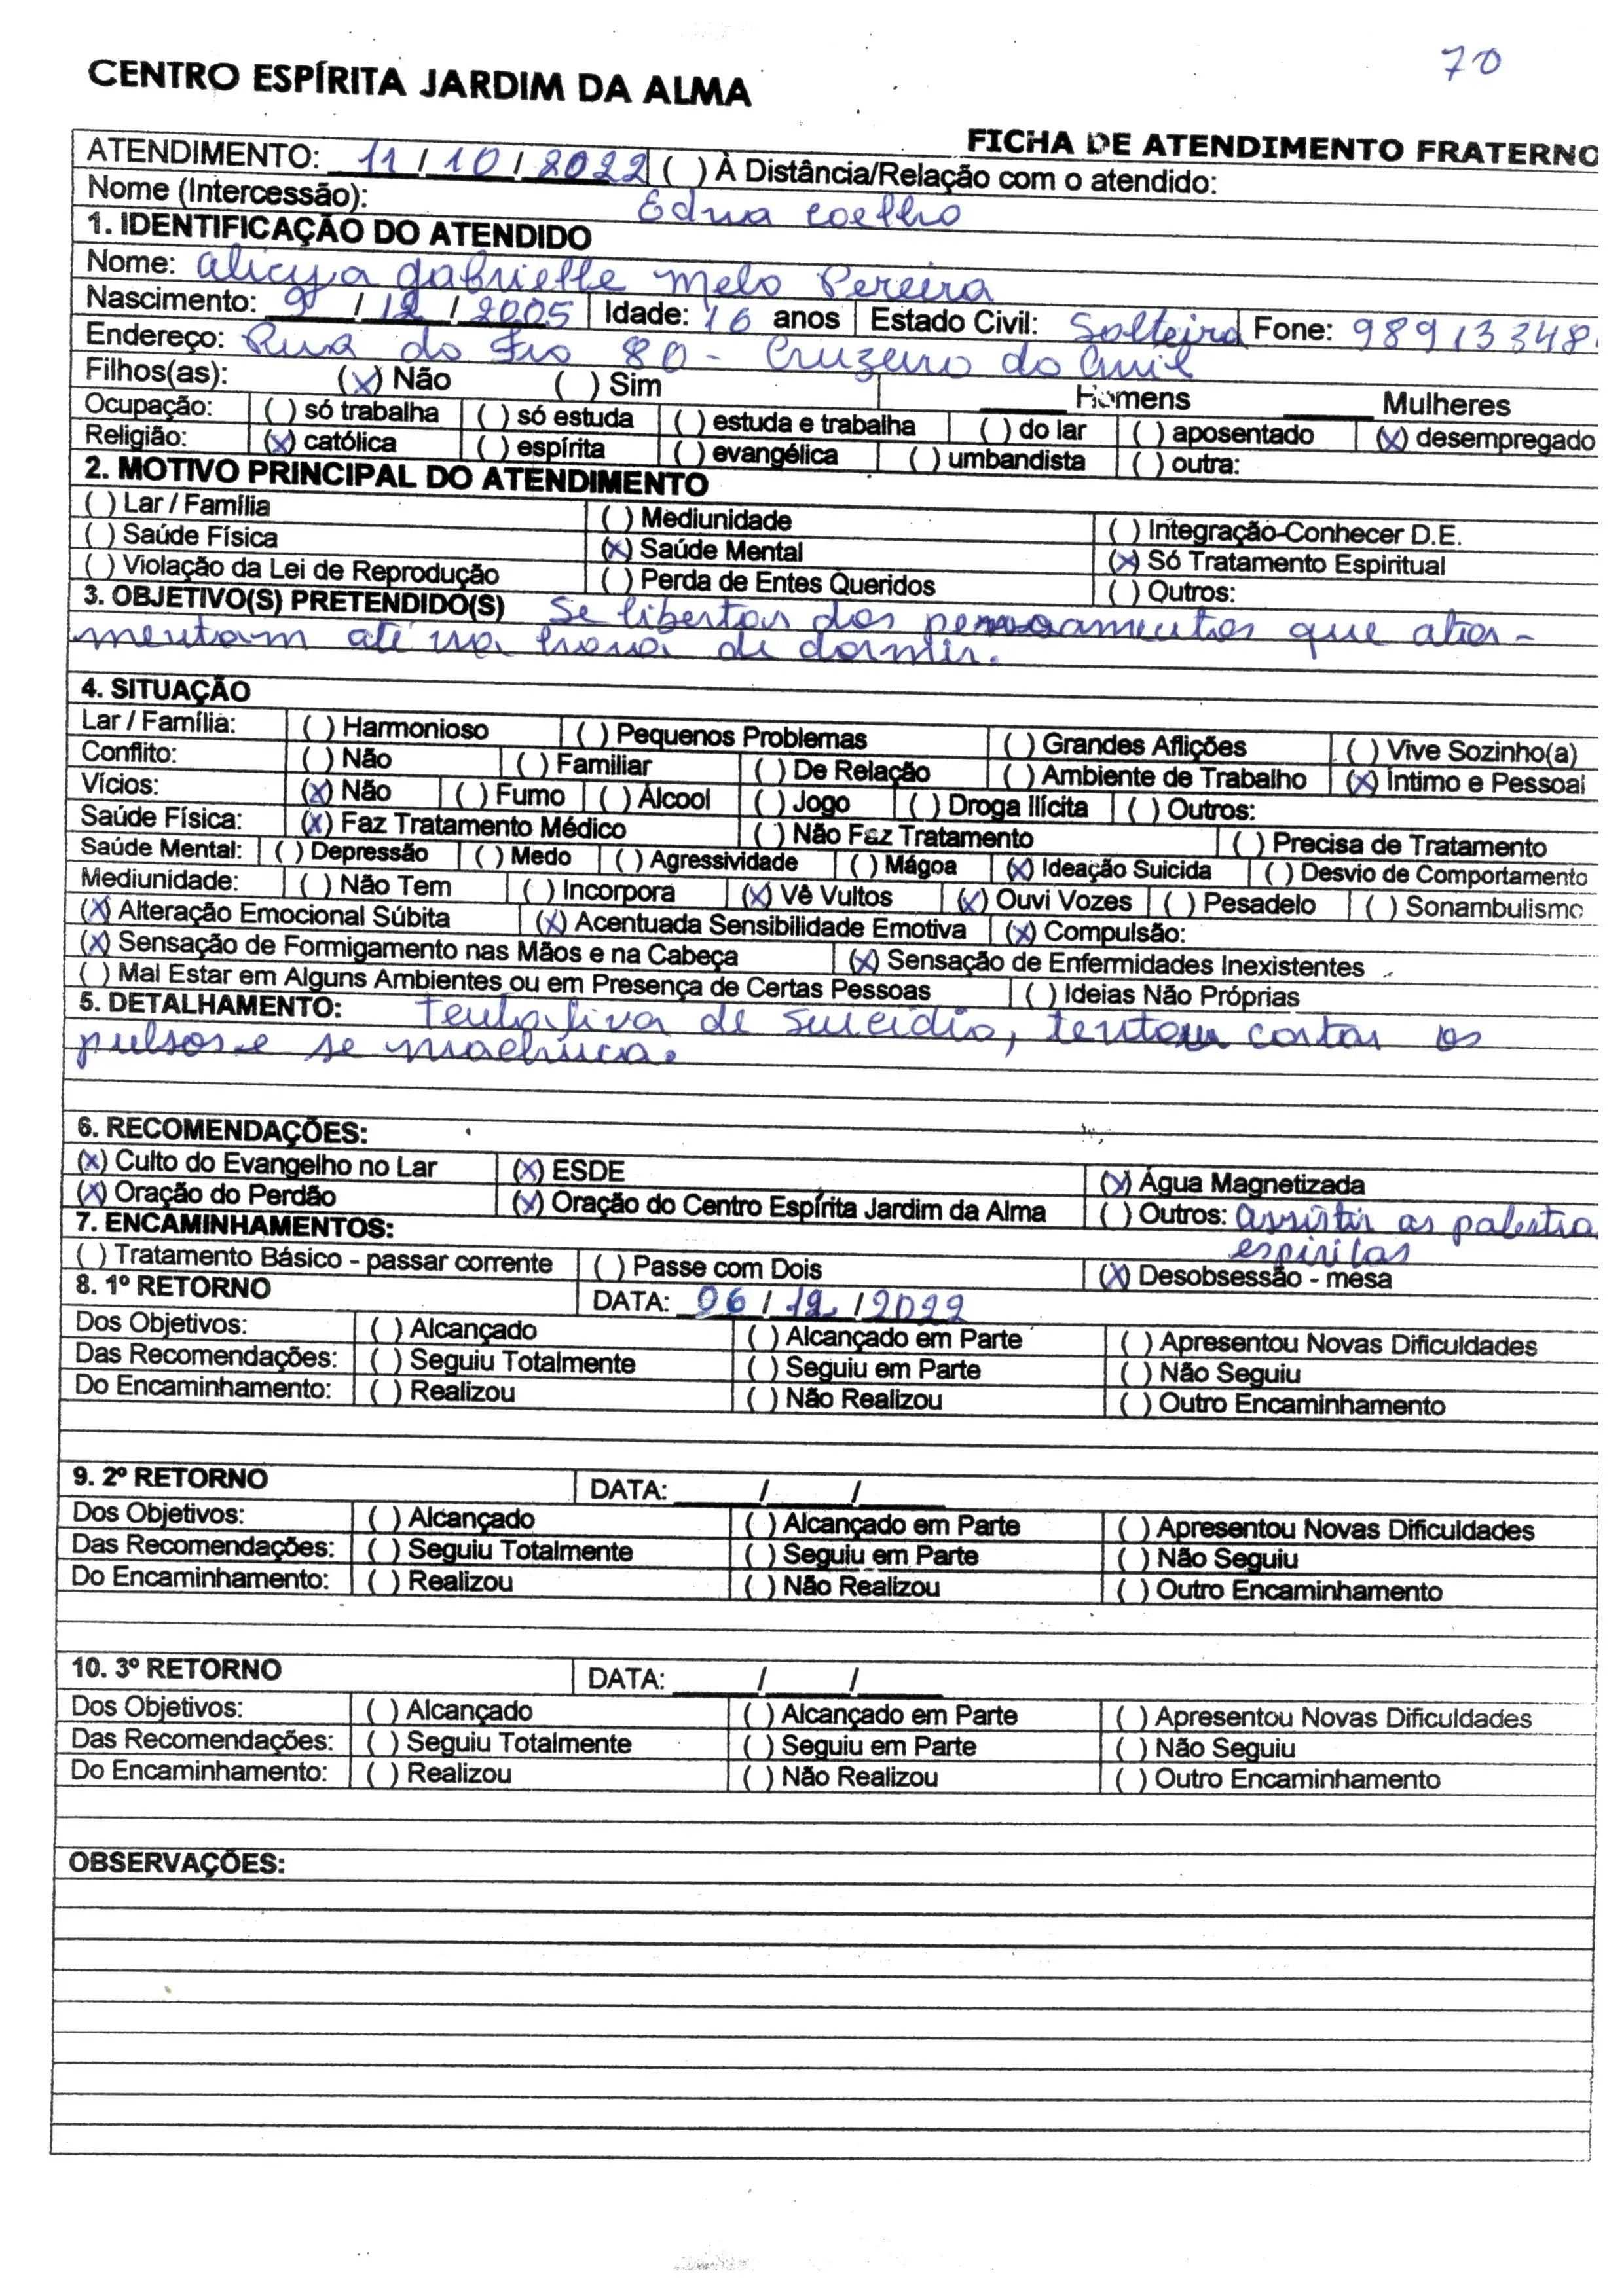 70
CENTRO ESPÍRITA JARDIM DA ALMA
FICHA DE ATENDIMENTO FRATERNO
ATENDIMENTO: 11 / 10 / 2022 ( ) À Distância/Relação com o atendido:
Nome (Intercessão): Edna Coelho
1. IDENTIFICAÇÃO DO ATENDIDO
Nome: Alicya Gabrielle Melo Pereira
Nascimento: 9 / 12 / 2005 Idade: 16 anos Estado Civil: Solteira Fone: 98913348
Endereço: Rua do Fio 80 - Cruzeiro do Anil
Filhos(as): (x) Não ( ) Sim ____ Homens ____ Mulheres
Ocupação: ( ) só trabalha ( ) só estuda ( ) estuda e trabalha ( ) do lar ( ) aposentado (x) desempregado
Religião: (x) católica ( ) espírita ( ) evangélica ( ) umbandista ( ) outra:
2. MOTIVO PRINCIPAL DO ATENDIMENTO
( ) Lar / Família ( ) Mediunidade ( ) Integração-Conhecer D.E.
( ) Saúde Física (x) Saúde Mental (x) Só Tratamento Espiritual
( ) Violação da Lei de Reprodução ( ) Perda de Entes Queridos ( ) Outros:
3. OBJETIVO(S) PRETENDIDO(S) Se libertar dos pensamentos que ator-
mentam até na hora de dormir.
4. SITUAÇÃO
Lar / Família: ( ) Harmonioso ( ) Pequenos Problemas ( ) Grandes Aflições ( ) Vive Sozinho(a)
Conflito: ( ) Não ( ) Familiar ( ) De Relação ( ) Ambiente de Trabalho (x) Íntimo e Pessoal
Vícios: (x) Não ( ) Fumo ( ) Álcool ( ) Jogo ( ) Droga Ilícita ( ) Outros:
Saúde Física: (x) Faz Tratamento Médico ( ) Não Faz Tratamento ( ) Precisa de Tratamento
Saúde Mental: ( ) Depressão ( ) Medo ( ) Agressividade ( ) Mágoa (x) Ideação Suicida ( ) Desvio de Comportamento
Mediunidade: ( ) Não Tem ( ) Incorpora (x) Vê Vultos (x) Ouvi Vozes ( ) Pesadelo ( ) Sonambulismo
(x) Alteração Emocional Súbita (x) Acentuada Sensibilidade Emotiva (x) Compulsão:
(x) Sensação de Formigamento nas Mãos e na Cabeça (x) Sensação de Enfermidades Inexistentes
( ) Mal Estar em Alguns Ambientes ou em Presença de Certas Pessoas ( ) Ideias Não Próprias
5. DETALHAMENTO: Tentativa de suicídio, tentou cortar os
pulsos e se machuca.
6. RECOMENDAÇÕES:
(x) Culto do Evangelho no Lar (x) ESDE (x) Água Magnetizada
(x) Oração do Perdão (x) Oração do Centro Espírita Jardim da Alma ( ) Outros: Assistir as palestra
espiritas
7. ENCAMINHAMENTOS:
( ) Tratamento Básico - passar corrente ( ) Passe com Dois (x) Desobsessão - mesa
8. 1º RETORNO DATA: 06 / 12 / 2022
Dos Objetivos: ( ) Alcançado ( ) Alcançado em Parte ( ) Apresentou Novas Dificuldades
Das Recomendações: ( ) Seguiu Totalmente ( ) Seguiu em Parte ( ) Não Seguiu
Do Encaminhamento: ( ) Realizou ( ) Não Realizou ( ) Outro Encaminhamento
9. 2º RETORNO DATA: ____/____/____
Dos Objetivos: ( ) Alcançado ( ) Alcançado em Parte ( ) Apresentou Novas Dificuldades
Das Recomendações: ( ) Seguiu Totalmente ( ) Seguiu em Parte ( ) Não Seguiu
Do Encaminhamento: ( ) Realizou ( ) Não Realizou ( ) Outro Encaminhamento
10. 3º RETORNO DATA: ____/____/____
Dos Objetivos: ( ) Alcançado ( ) Alcançado em Parte ( ) Apresentou Novas Dificuldades
Das Recomendações: ( ) Seguiu Totalmente ( ) Seguiu em Parte ( ) Não Seguiu
Do Encaminhamento: ( ) Realizou ( ) Não Realizou ( ) Outro Encaminhamento
OBSERVAÇÕES: